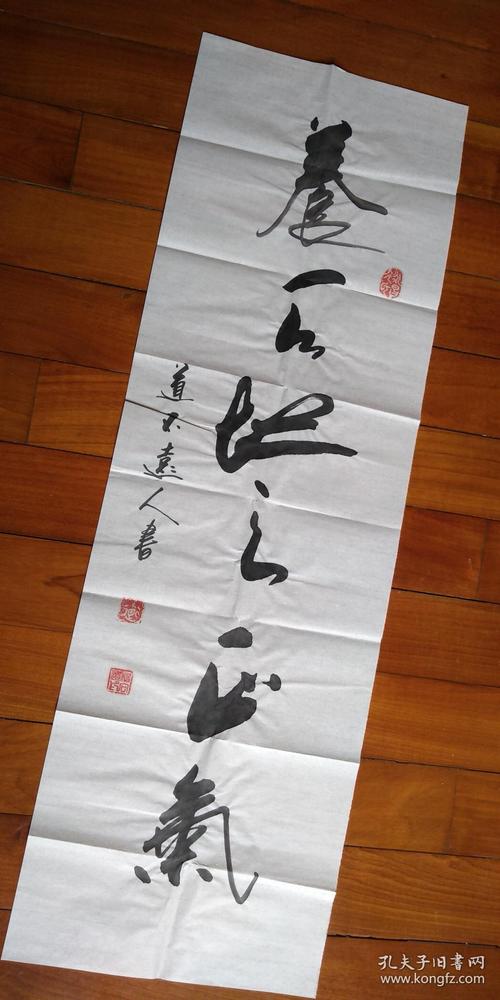 養天地之正氣
道不遠人書
孔夫子旧书网
www.kongfz.com